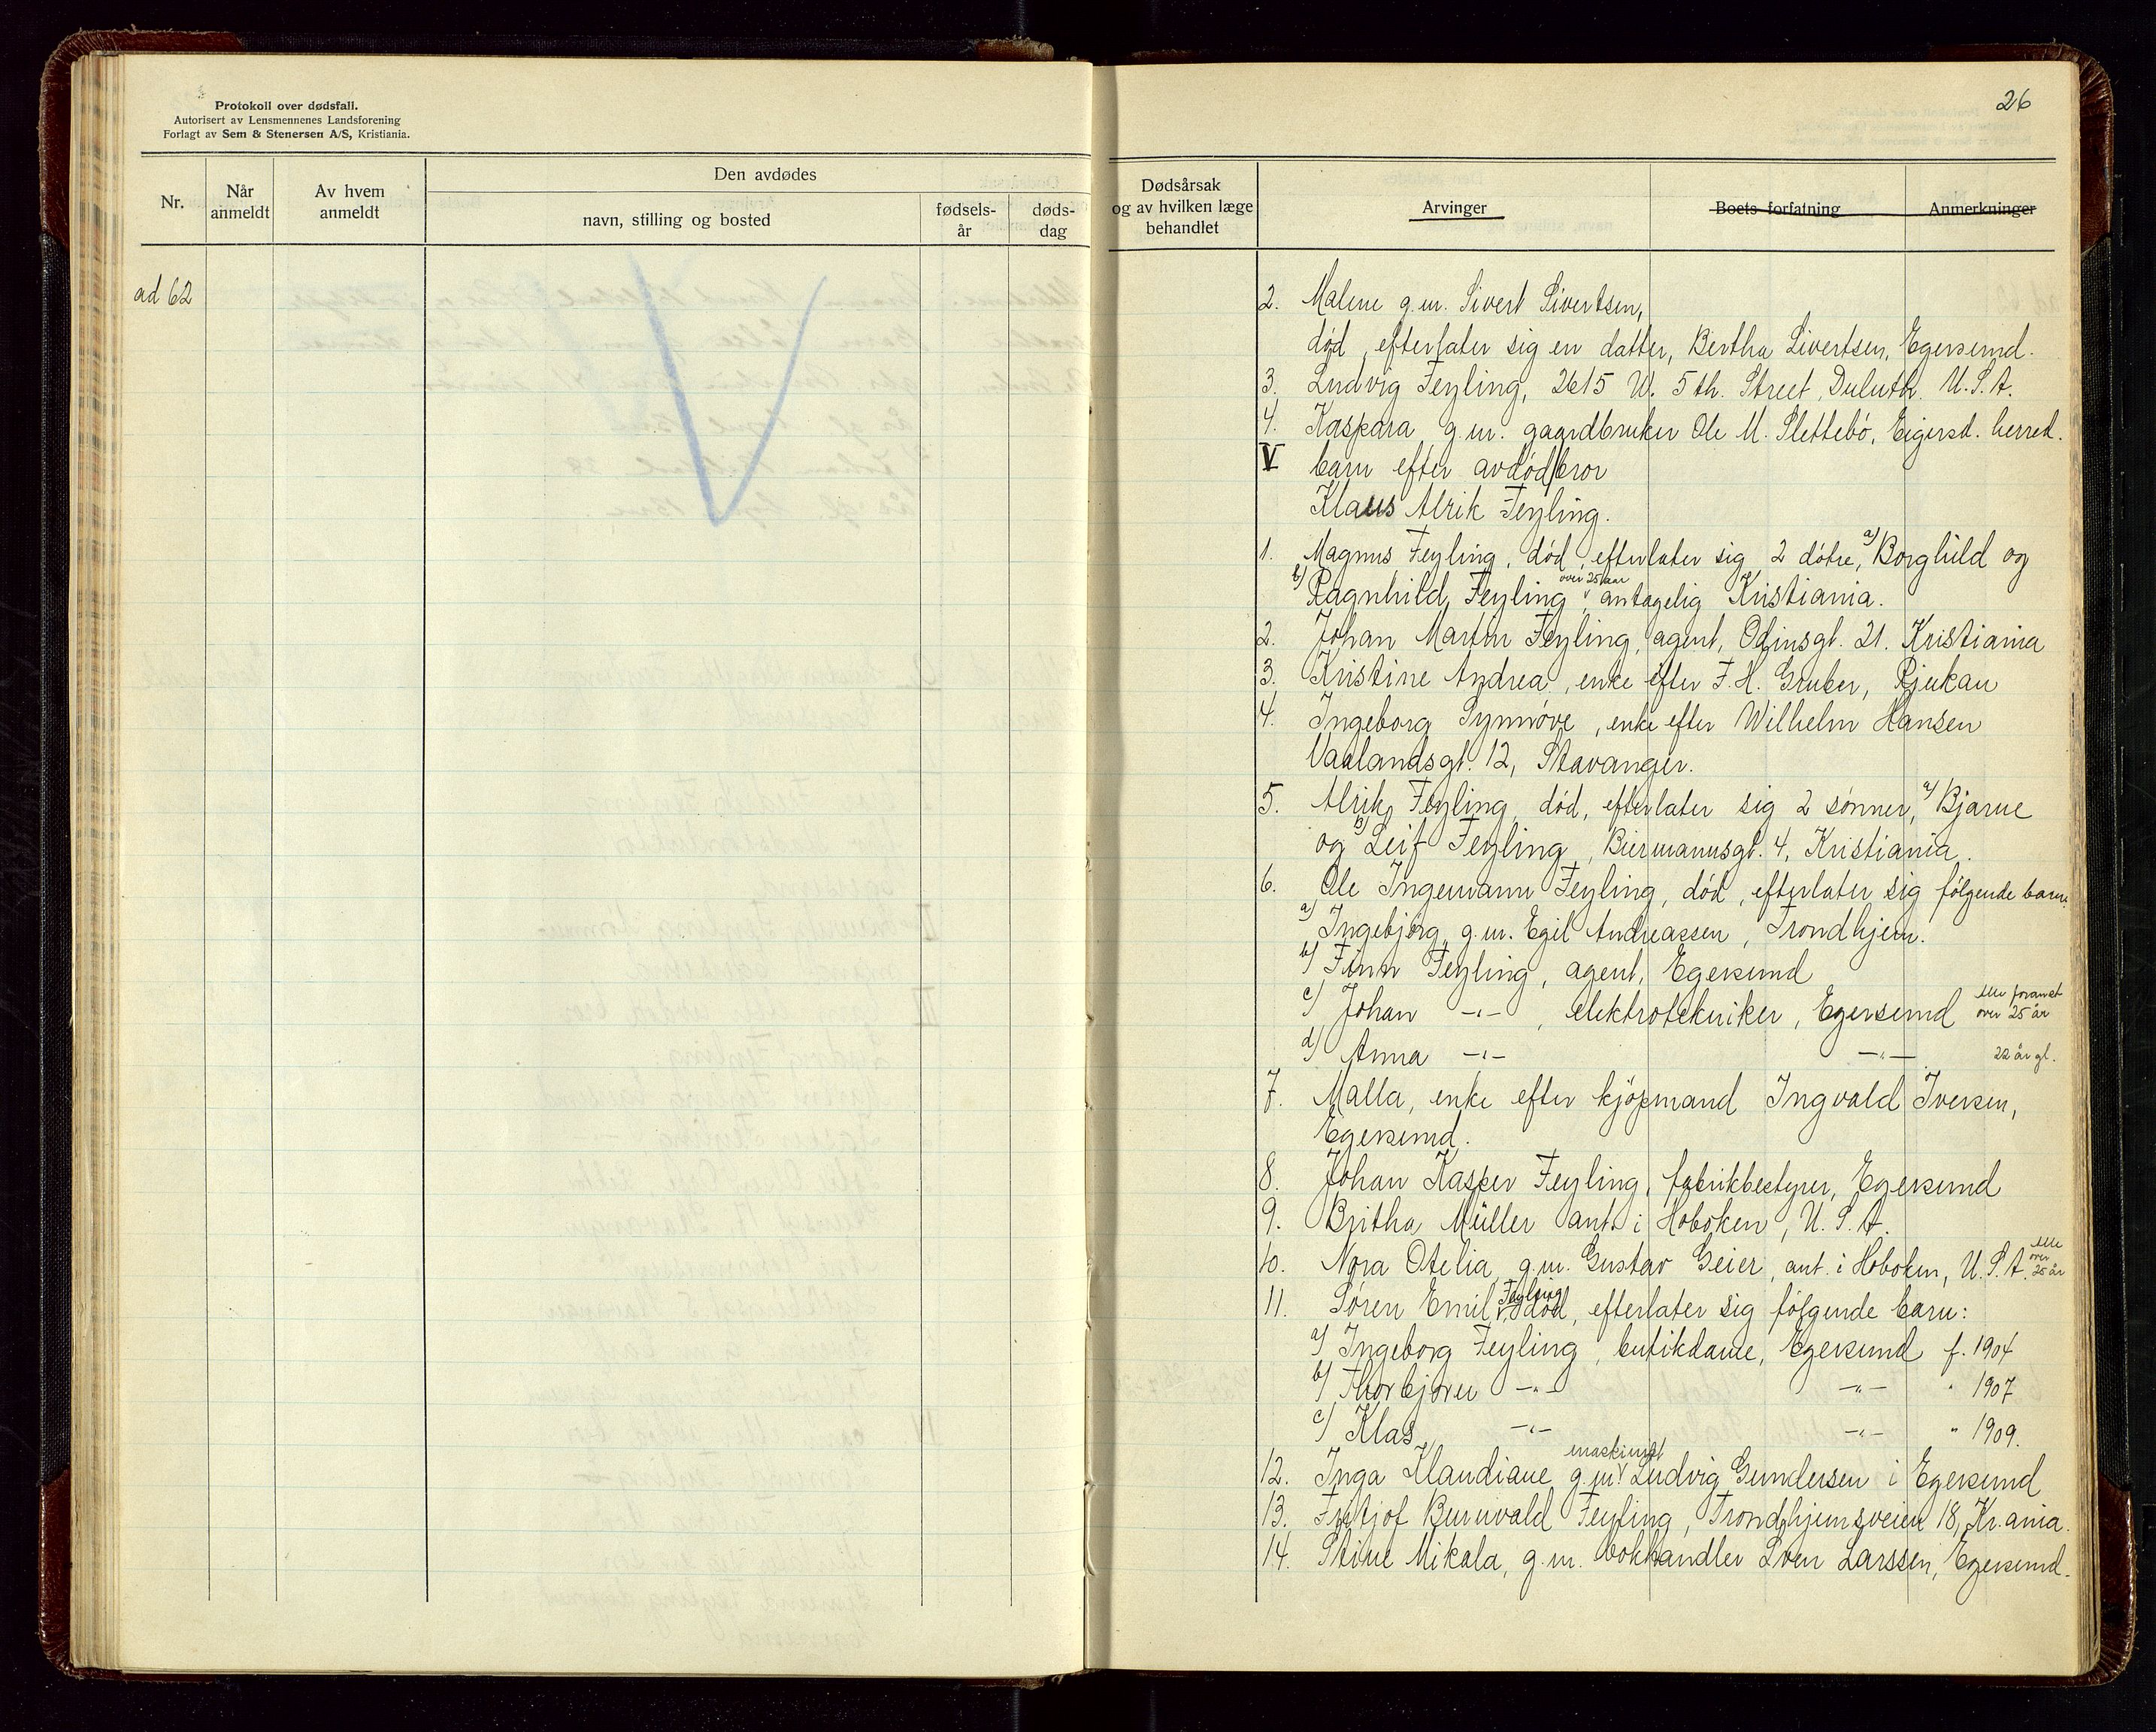 Protokoll over dødsfall.
Autorisert av Lensmennenes Landsforening
Forlagt av Sem & Stenersen A/S, Kristiania.
26
Nr.
Når anmeldt
Av hvem anmeldt
Den avdødes
navn, stilling og bosted
fødsels-år
døds-dag
Dødsårsak og av hvilken læge behandlet
Arvinger
Boets forfatning
Anmerkninger
ad 62
2. Malene g.m. Sivert Sivertsen,
død, efterlater sig en datter, Bertha Sivertsen, Egersund.
3. Ludvig Feyling, 2615 W. 5th. Street, Duluth. U.S.A.
4. Kaspara g.m. gaardbruker Ole M. Slettebö, Eigersd. herred.
V barn efter avdød bror
Klaus Alrik Feyling.
1. Magnus Feyling, død, efterlater sig 2 døtre, a) Borghild og
b) Ragnhild Feyling, over 25 aar antagelig Kristiania.
2. Johan Martin Feyling, agent, Odinsgt. 21. Kristiania
3. Kristine Andrea, enke efter F. H. Gruber, Rjukan
4. Ingeborg Synnöve, enke efter Wilhelm Hansen
Vaalandsgt. 12, Stavanger.
5. Alrik Feyling, död, efterlater sig 2 sönner, a) Bjarne
og b) Leif Feyling, Biermannsgt. 4, Kristiania.
6. Ole Ingemann Feyling, död, efterlater sig fölgende barn:
a) Ingebjörg, g.m. Egil Andreassen, Trondhjem.
b) Finn Feyling, agent, Egersund
c) Johan -"- , elektrotekniker, Egersund alle foranst over 25 år
d) Anna -"- -"- 22 år gl.
7. Malla, enke efter kjöpmand Ingvald Iversen,
Egersund.
8. Johan Kasper Feyling, fabrikbestyrer, Egersund
9. Britha Müller ant. i Hoboken, U.S.A.
10. Nora Otelia g.m. Gustav Geier, ant. i Hoboken, U.S.A. alle over 25 år
11. Sören Emil Feyling, död, efterlater sig fölgende barn:
a) Ingeborg Feyling, butikdame, Egersund f. 1904
b) Thorbjörn -"- -"- " 1907
c) Klas -"- -"- " 1909.
12. Inga Klaudiane g.m. maskinist Ludvig Gundersen i Egersund
13. Fritjof Burnvald Feyling, Trondhjemsveien 18, Kr.ania.
14. Stine Mikala, g.m. bokhandler Sven Larssen, Egersund.